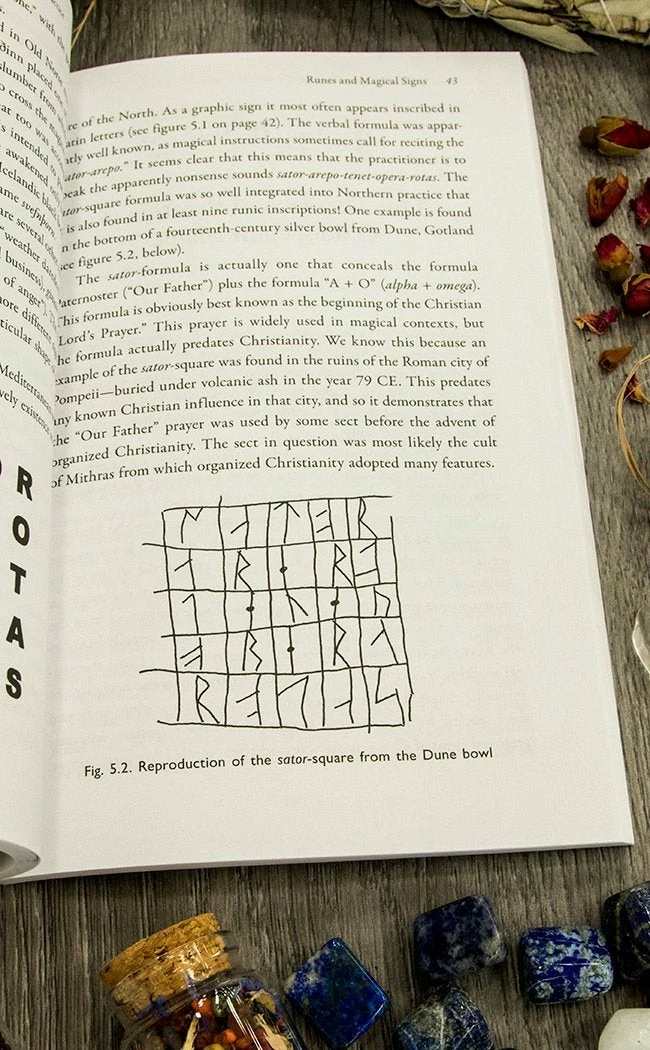 one," with
in Old
placed
slumber from
cross the
too was
intended
awakened
Icelandic
are several
"weather
business),
of anger").
different
shape
R
O
T
A
S
Runes and Magical Signs 43
re of the North. As a graphic sign it most often appears inscribed in
atin letters (see figure 5.1 on page 42). The verbal formula was appar-
tly well known, as magical instructions sometimes call for reciting the
ator-arepo." It seems clear that this means that the practitioner is to
eak the apparently nonsense sounds sator-arepo-tenet-opera-rotas. The
tor-square formula was so well integrated into Northern practice that
is also found in at least nine runic inscriptions! One example is found
n the bottom of a fourteenth-century silver bowl from Dune, Gotland
see figure 5.2, below).
The sator-formula is actually one that conceals the formula
Paternoster ("Our Father") plus the formula "A + O" (alpha + omega).
This formula is obviously best known as the beginning of the Christian
Lord's Prayer." This prayer is widely used in magical contexts, but
he formula actually predates Christianity. We know this because an
example of the sator-square was found in the ruins of the Roman city of
Pompeii—buried under volcanic ash in the year 79 CE. This predates
ny known Christian influence in that city, and so it demonstrates that
he "Our Father" prayer was used by some sect before the advent of
organized Christianity. The sect in question was most likely the cult
of Mithras from which organized Christianity adopted many features.
Fig. 5.2. Reproduction of the sator-square from the Dune bowl